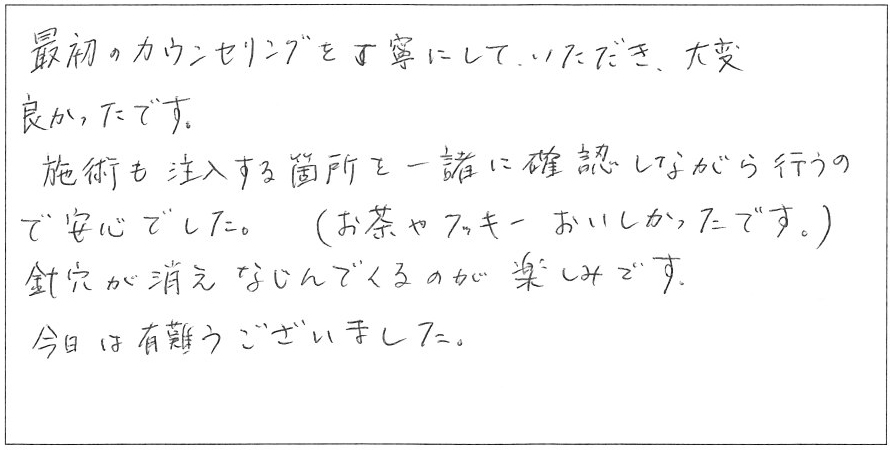 最初のカウンセリングを丁寧にして、いただき、大変
良かったです。
施術も注入する箇所を一諸に確認しながら行うの
で安心でした。 (お茶やクッキーおいしかったです。)
針穴が消えなじんでくるのが楽しみです。
今日は有難うございました。